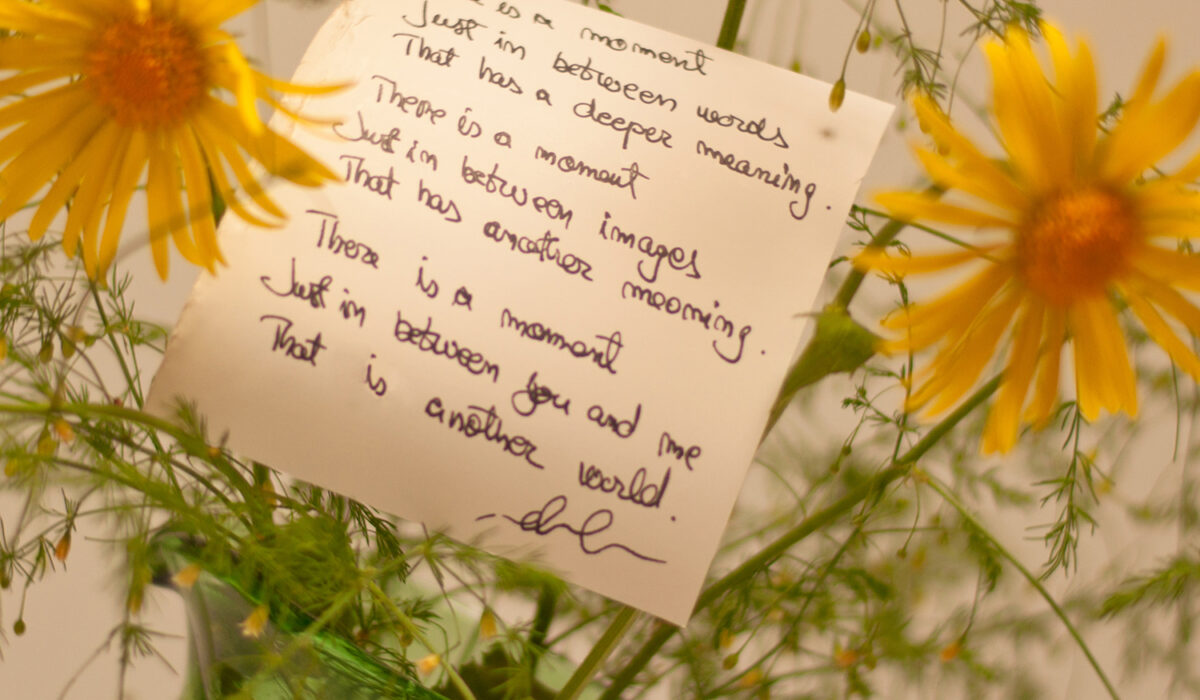 is a moment
Just in between words
That has a deeper meaning.
There is a moment
Just in between images
That has another meaning.
There is a moment
Just in between you and me
That is another world.